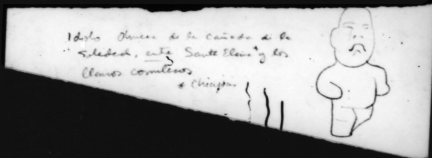 Idolo Olmeca de la cañada de la
"Soledad, entre Santa Elena" y los
llanos costeños
a Chiapas